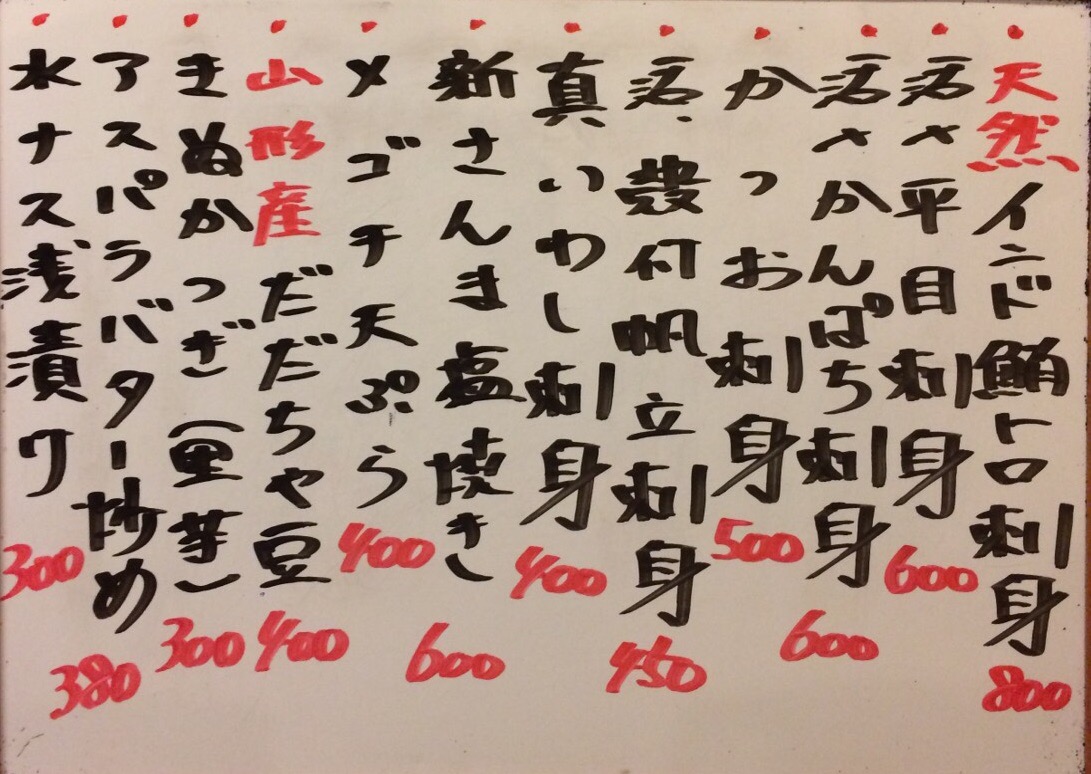 天然インド鮪トロ刺身 800
活〆平目刺身 600
活〆かんぱち刺身 600
かつお刺身 500
活、殻付帆立刺身 450
真いわし刺身 400
新さんま塩焼き 600
メゴチ天ぷら 400
山形産だだちゃ豆 400
きぬかつぎ（里芋） 300
アスパラバター炒め 380
水ナス浅漬け 300